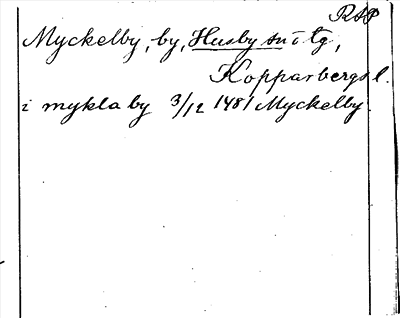 RAP
Myckelby, by, Husby sn i tg,
Kopparbergs l.
i mykla by 3/12 1481 Myckelby.